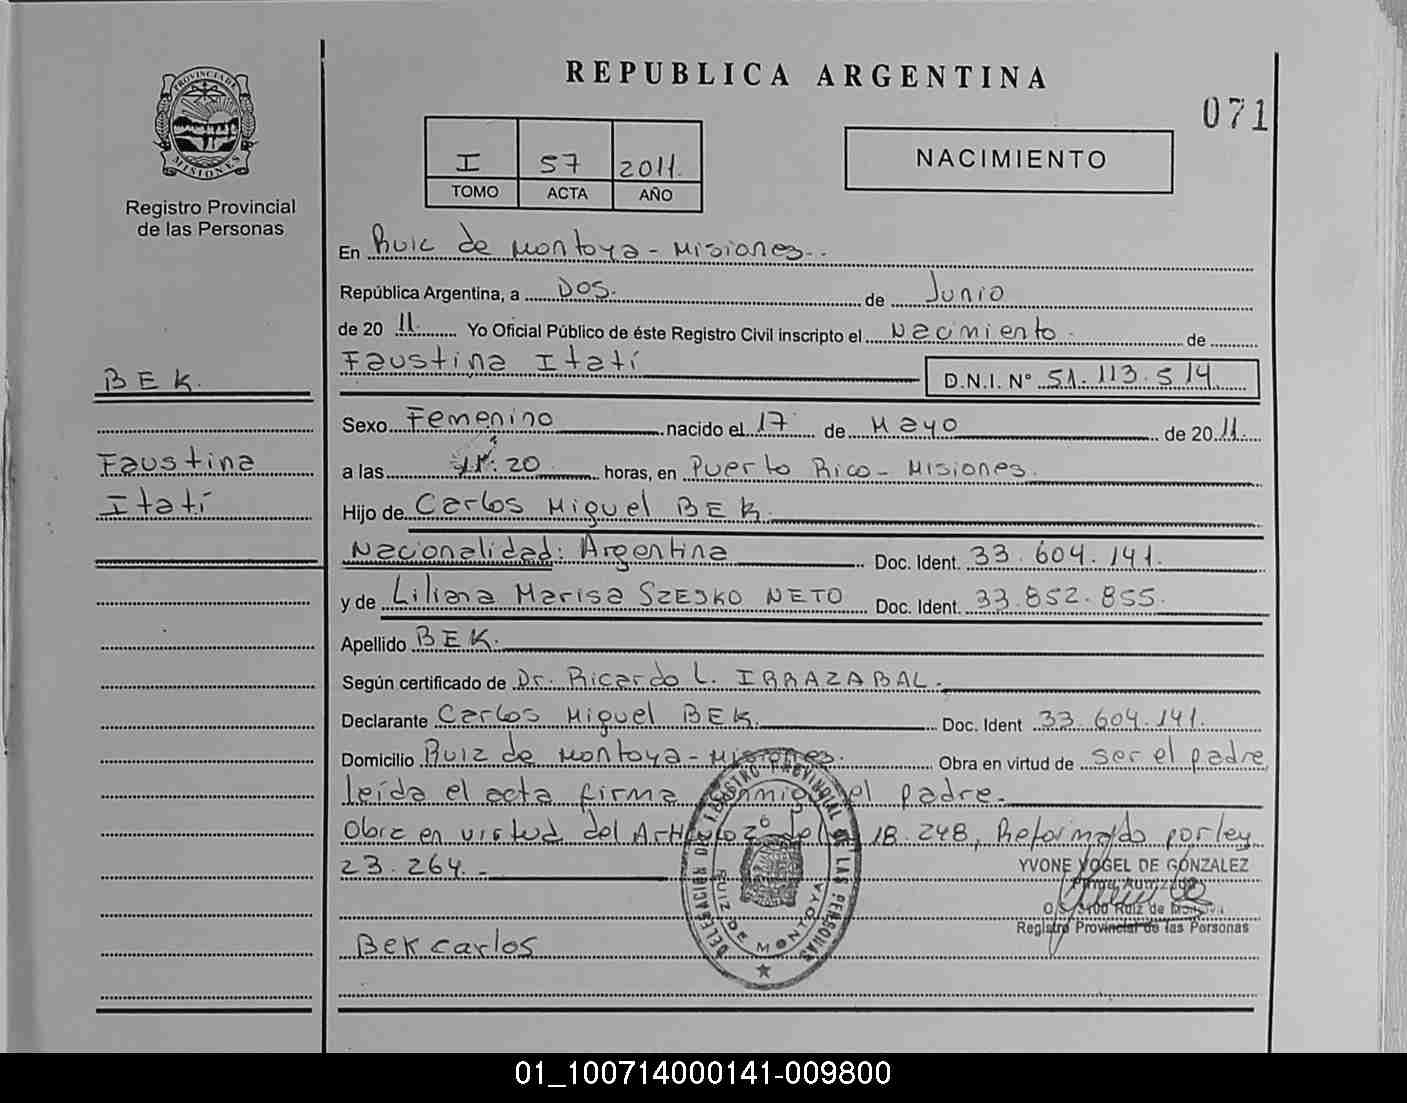 PROVINCIA DE
MISIONES
Registro Provincial
de las Personas
BEK.
Faustina
Itatí
REPUBLICA ARGENTINA
071
I 57 2011.
TOMO ACTA AÑO
NACIMIENTO
En Ruiz de Montoya - Misiones.-
República Argentina, a Dos. de Junio
de 20 11. Yo Oficial Público de éste Registro Civil inscripto el Nacimiento de
Faustina Itatí D.N.I. N° 51.113.514
Sexo Femenino nacido el 17 de Mayo de 20 11.
a las :20 horas, en Puerto Rico - Misiones.
Hijo de Carlos Miguel BEK.
Nacionalidad: Argentina Doc. Ident. 33.604.141.
y de Liliana Marisa SZESKO NETO Doc. Ident. 33.852.855.
Apellido BEK.
Según certificado de Dr. Ricardo L. IRRAZABAL.
Declarante Carlos Miguel BEK. Doc. Ident 33.604.141.
Domicilio Ruiz de Montoya - Misiones. Obra en virtud de ser el padre,
leída el acta firma el padre.
Obra en virtud del 18.248, Reformado por ley
23.264.-
YVONE VOGEL DE GONZALEZ
Firma Autorizada
3100 Ruiz de Montoya
Registro Provincial de las Personas
Bek carlos
DELEGACION DEL REGISTRO PROVINCIAL DE LAS PERSONAS
RUIZ DE MONTOYA
01_100714000141-009800